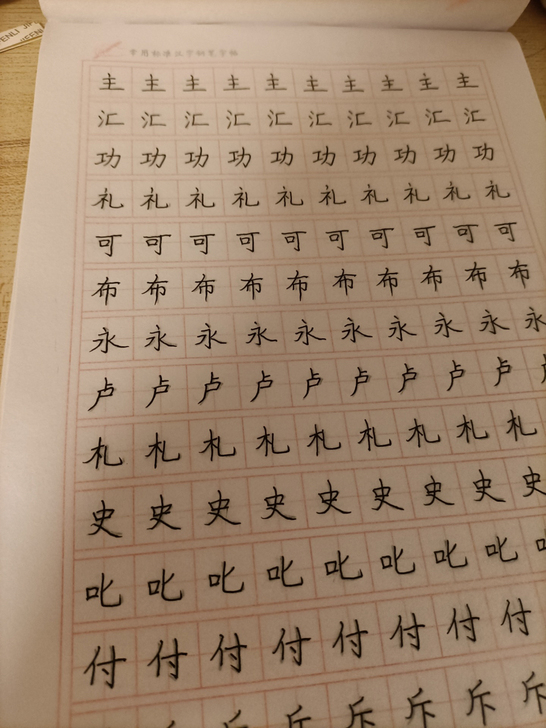 常用标准汉字钢笔字帖
主 主 主 主 主 主 主 主 主 主
汇 汇 汇 汇 汇 汇 汇 汇 汇 汇
功 功 功 功 功 功 功 功 功 功
礼 礼 礼 礼 礼 礼 礼 礼 礼 礼
可 可 可 可 可 可 可 可 可 可
布 布 布 布 布 布 布 布 布 布
永 永 永 永 永 永 永 永 永 永
卢 卢 卢 卢 卢 卢 卢 卢 卢
札 札 札 札 札 札 札 札 札
史 史 史 史 史 史 史 史 史
叱 叱 叱 叱 叱 叱 叱 叱
付 付 付 付 付 付 付 付
斥 斥 斥 斥 斥 斥